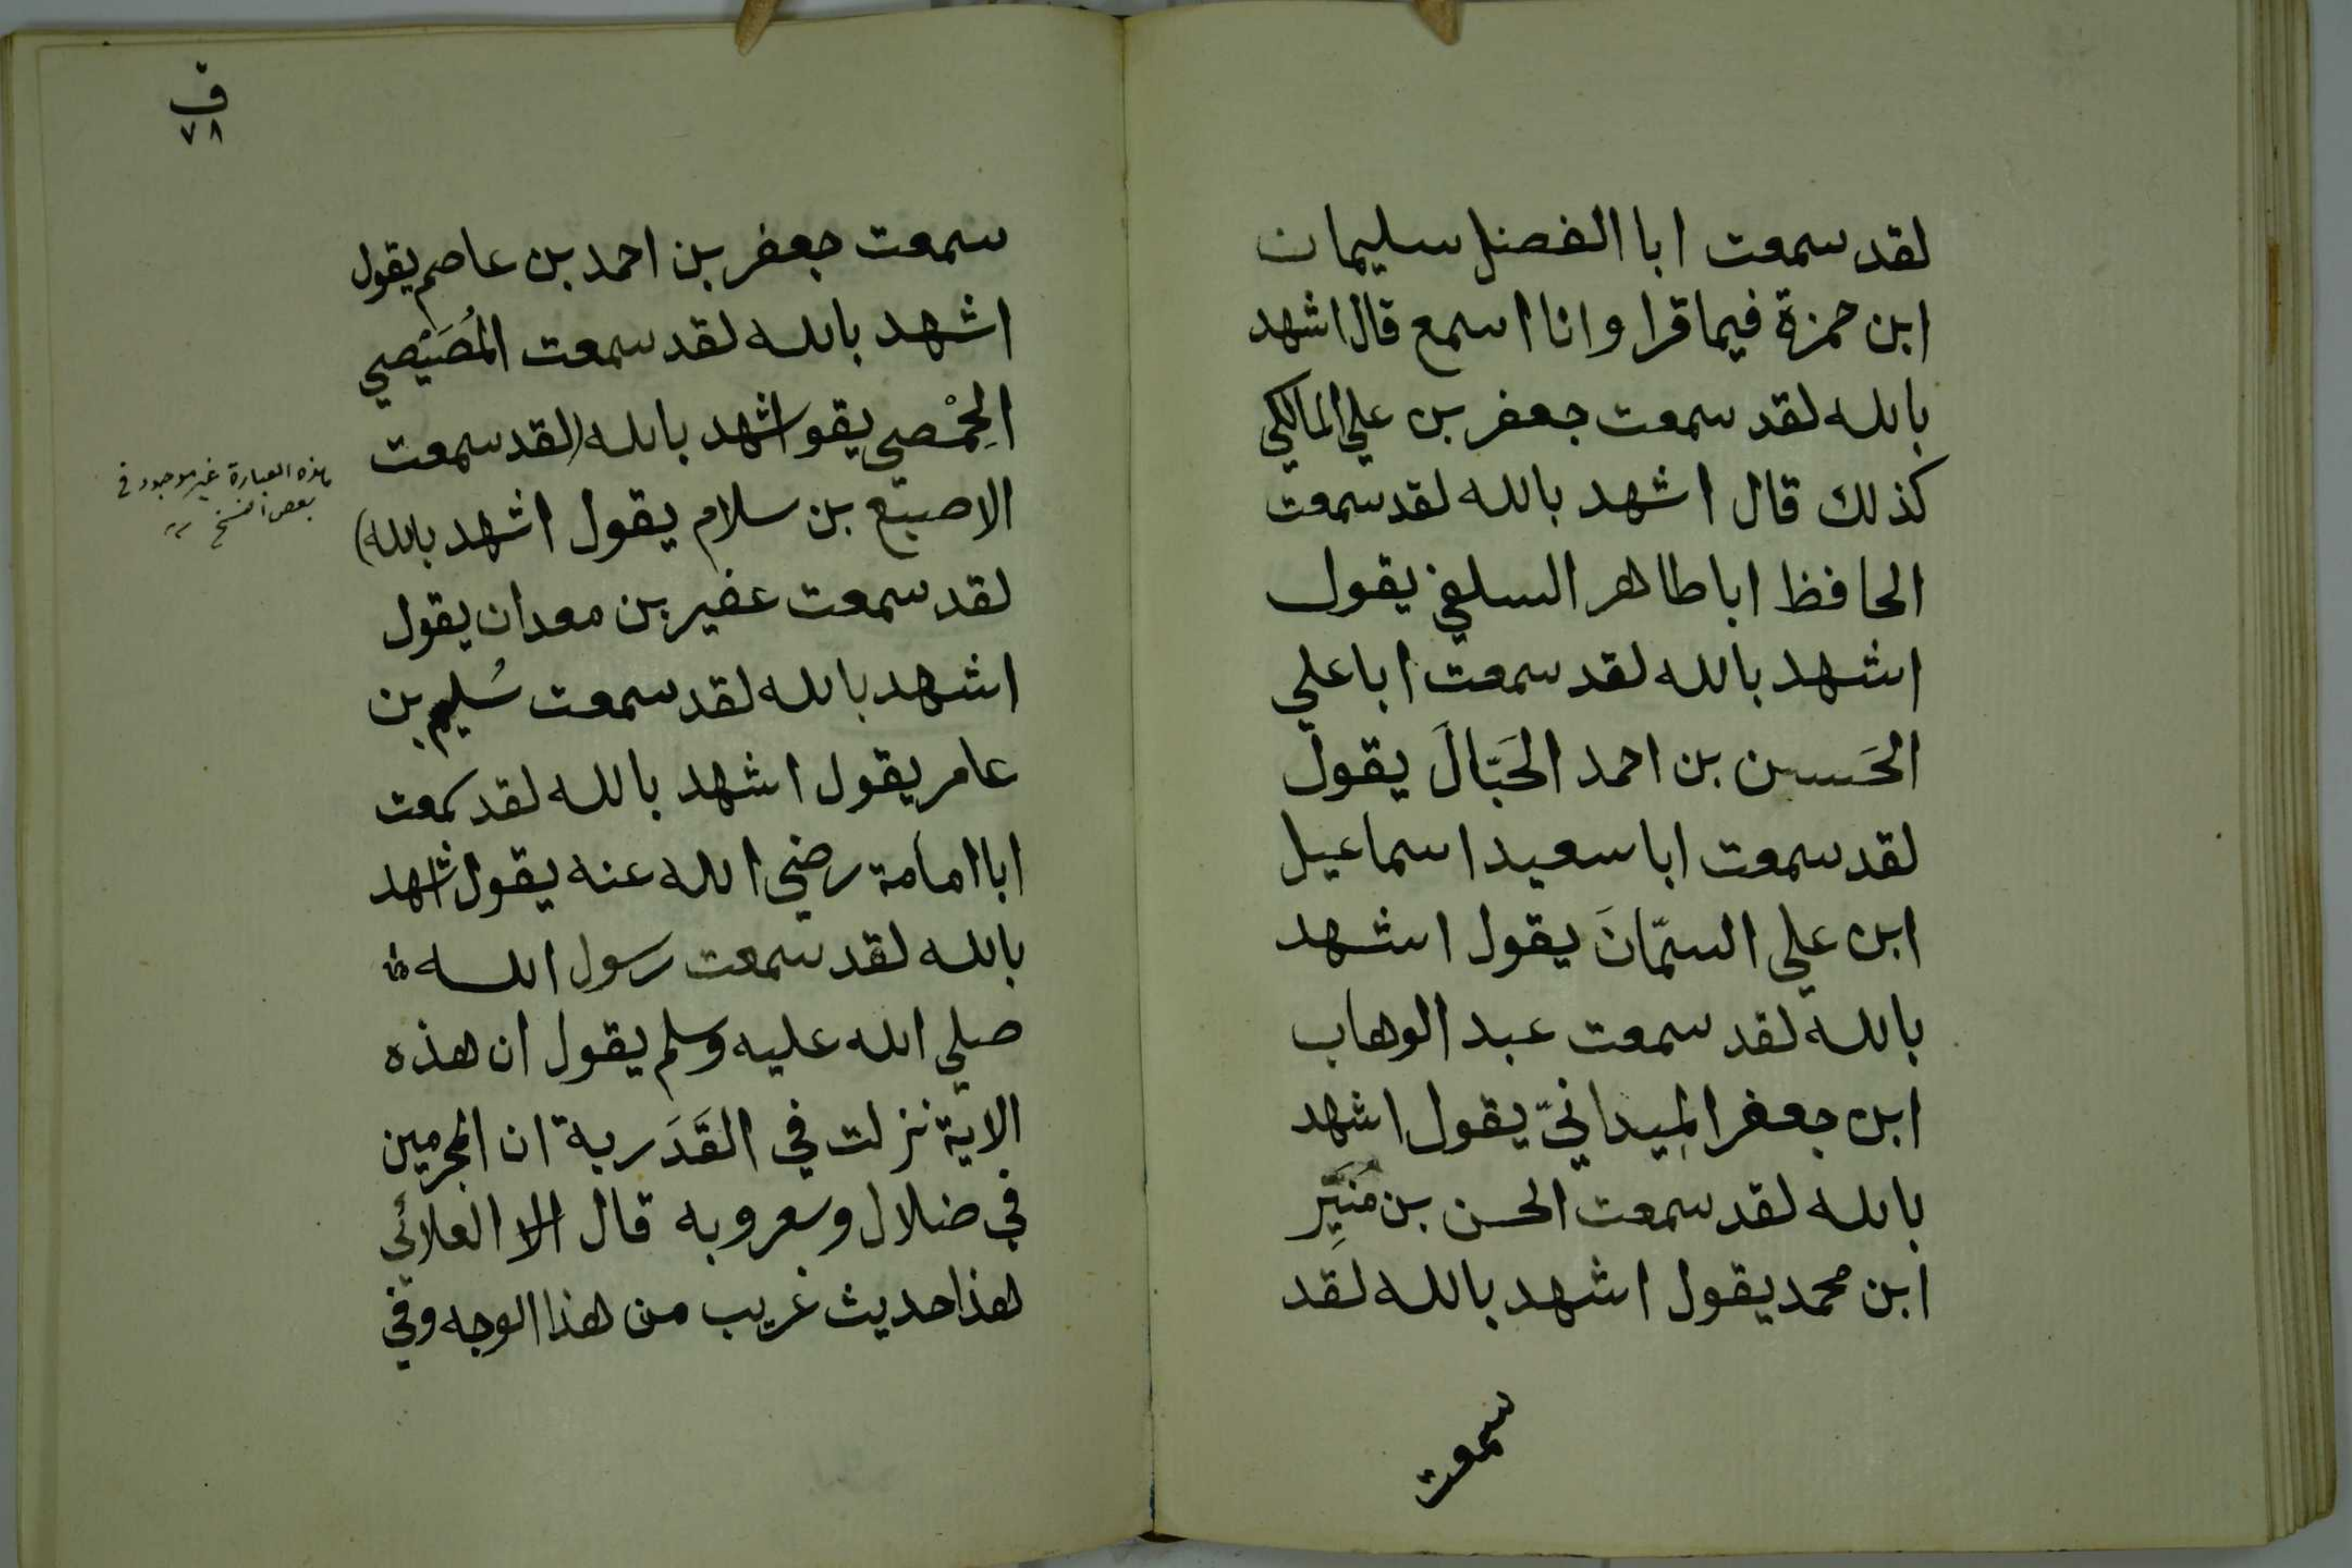 لقد سمعت ابا الفضل سليمان
ابن حمزة فيما قرا وانا اسمع قال اشهد
بالله لقد سمعت جعفر بن علي المالكي
كذلك قال اشهد بالله لقد سمعت
الحافظ ابا طاهر السلفي يقول
اشهد بالله لقد سمعت ابا علي
الحَسن بن احمد الحَبّالَ يقول
لقد سمعت ابا سعيد اسماعيل
ابن علي السمّانَ يقول اشهد
بالله لقد سمعت عبد الوهاب
ابن جعفر المِيدانيّ يقول اشهد
بالله لقد سمعت الحسن بن مُنَيِّر
ابن محمد يقول اشهد بالله لقد
سمعت
ف
٧٨
سمعت جعفر بن احمد بن عاصم يقول
اشهد بالله لقد سمعت المُصَيْصي
الحِمْصي يقو اشهد بالله (لقد سمعت
الاصبع بن سلام يقول اشهد بالله)
هذه العبارة غير موجود في
بعض النسخ
لقد سمعت عفير بن معدان يقول
اشهد بالله لقد سمعت سُليم بن
عامر يقول اشهد بالله لقد سمعت
ابا امامة رضي الله عنه يقول اشهد
بالله لقد سمعت رسول الله
صلي الله عليه وسلم يقول ان هذه
الاية نزلت في القَدَرية ان المجرمين
في ضلال وسعر وبه قال الا العلائي
هذا حديث غريب من هذا الوجه وفي